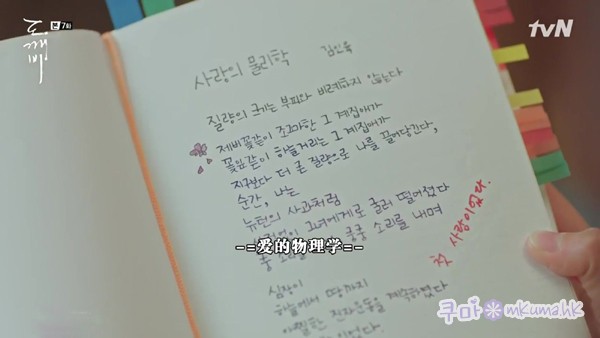 도깨비
본 7회
tvN
사랑의 물리학 김인육
질량의 크기는 부피와 비례하지 않는다
제비꽃같이 조그마한 그 계집애가
꽃잎같이 하늘거리는 그 계집애가
지구보다 더 큰 질량으로 나를 끌어당긴다,
순간, 나는
뉴턴의 사과처럼
그녀에게로 굴러 떨어졌다
-=爱的物理学=-
쿵 쿵쿵 소리를 내며
첫 사랑이었다.
심장이
하늘에서 땅까지
아찔한 진자운동을 계속하였다
쿠마 mkuma.hk